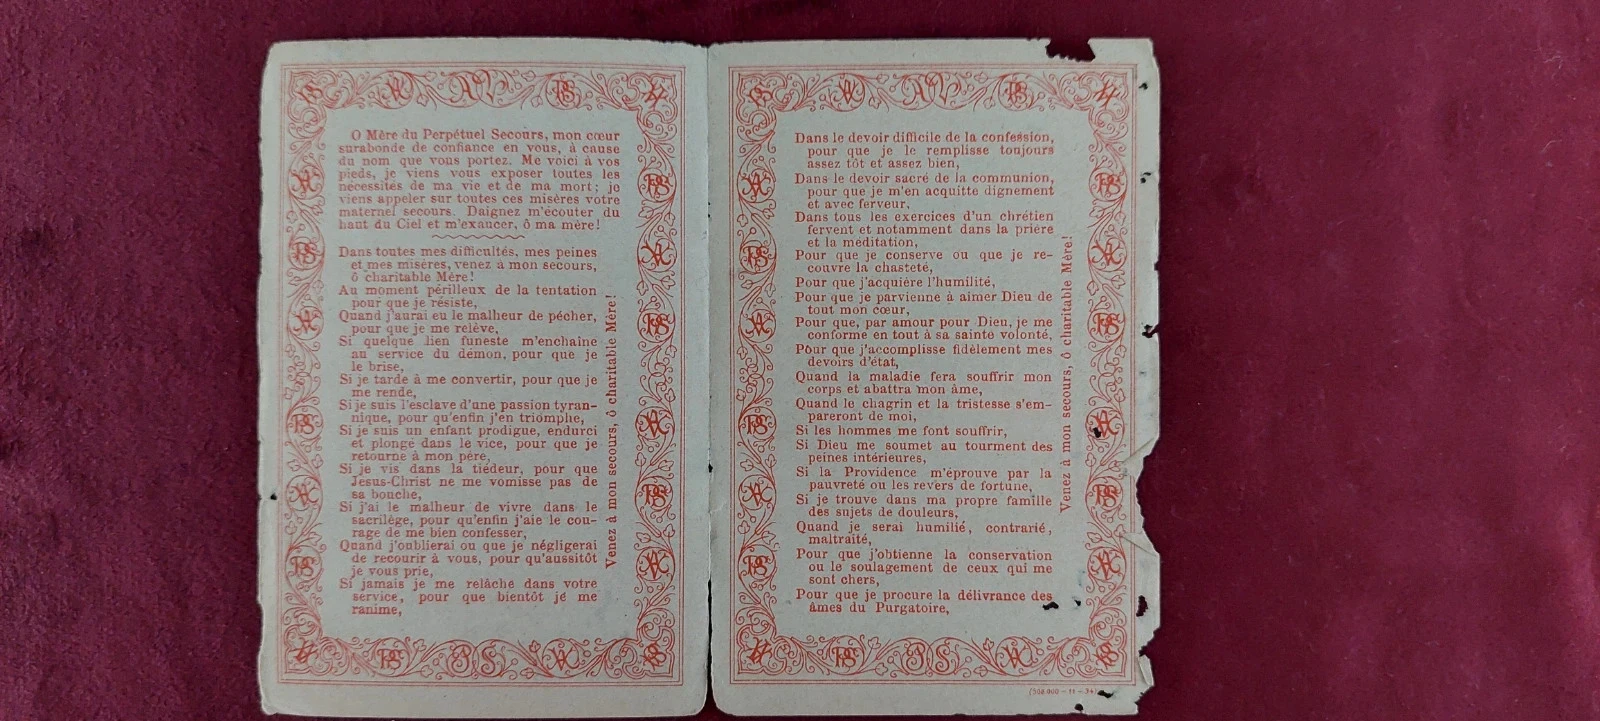 O Mère du Perpétuel Secours, mon cœur
surabonde de confiance en vous, à cause
du nom que vous portez. Me voici à vos
pieds, je viens vous exposer toutes les
nécessités de ma vie et de ma mort; je
viens appeler sur toutes ces misères votre
maternel secours. Daignez m'écouter du
haut du Ciel et m'exaucer, ô ma mère!
Dans toutes mes difficultés, mes peines
et mes misères, venez à mon secours,
ô charitable Mère!
Au moment périlleux de la tentation
pour que je résiste,
Quand j'aurai eu le malheur de pécher,
pour que je me relève,
Si quelque lien funeste m'enchaine
au service du démon, pour que je
le brise,
Si je tarde à me convertir, pour que je
me rende,
Si je suis l'esclave d'une passion tyran-
nique, pour qu'enfin j'en triomphe,
Si je suis un enfant prodigue, endurci
et plongé dans le vice, pour que je
retourne à mon père,
Si je vis dans la tiédeur, pour que
Jesus-Christ ne me vomisse pas de
sa bouche,
Si j'ai le malheur de vivre dans le
sacrilège, pour qu'enfin j'aie le cou-
rage de me bien confesser,
Quand j'oublierai ou que je négligerai
de recourir à vous, pour qu'aussitôt
je vous prie,
Si jamais je me relâche dans votre
service, pour que bientôt je me
ranime,
Venez à mon secours, ô charitable Mère!
Dans le devoir difficile de la confession,
pour que je le remplisse toujours
assez tôt et assez bien,
Dans le devoir sacré de la communion,
pour que je m'en acquitte dignement
et avec ferveur,
Dans tous les exercices d'un chrétien
fervent et notamment dans la prière
et la méditation,
Pour que je conserve ou que je re-
couvre la chasteté,
Pour que j'acquière l'humilité,
Pour que je parvienne à aimer Dieu de
tout mon cœur,
Pour que, par amour pour Dieu, je me
conforme en tout à sa sainte volonté,
Pour que j'accomplisse fidèlement mes
devoirs d'état,
Quand la maladie fera souffrir mon
corps et abattra mon âme,
Quand le chagrin et la tristesse s'em-
pareront de moi,
Si les hommes me font souffrir,
Si Dieu me soumet au tourment des
peines intérieures,
Si la Providence m'éprouve par la
pauvreté ou les revers de fortune,
Si je trouve dans ma propre famille
des sujets de douleurs,
Quand je serai humilié, contrarié,
maltraité,
Pour que j'obtienne la conservation
ou le soulagement de ceux qui me
sont chers,
Pour que je procure la délivrance des
âmes du Purgatoire,
Venez à mon secours, ô charitable Mère!